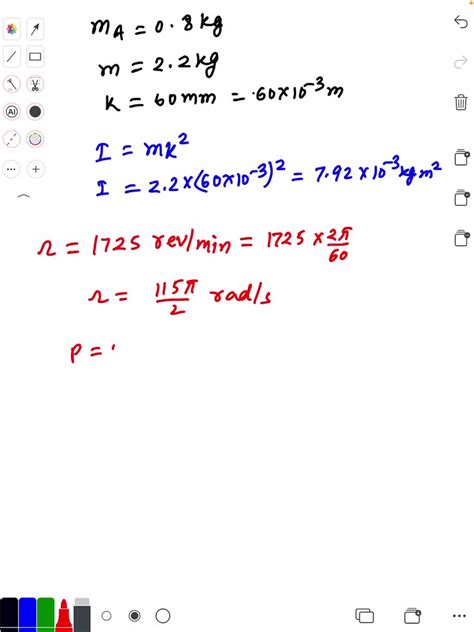 m_A = 0.8 kg
m = 2.2 kg
K = 60 mm = .60×10⁻³ m
I = mk²
I = 2.2×(60×10⁻³)² = 7.92×10⁻³ kg m²
r = 1725 rev/min = 1725 × 2π/60
r = 115π/2 rad/s
P = .
AI